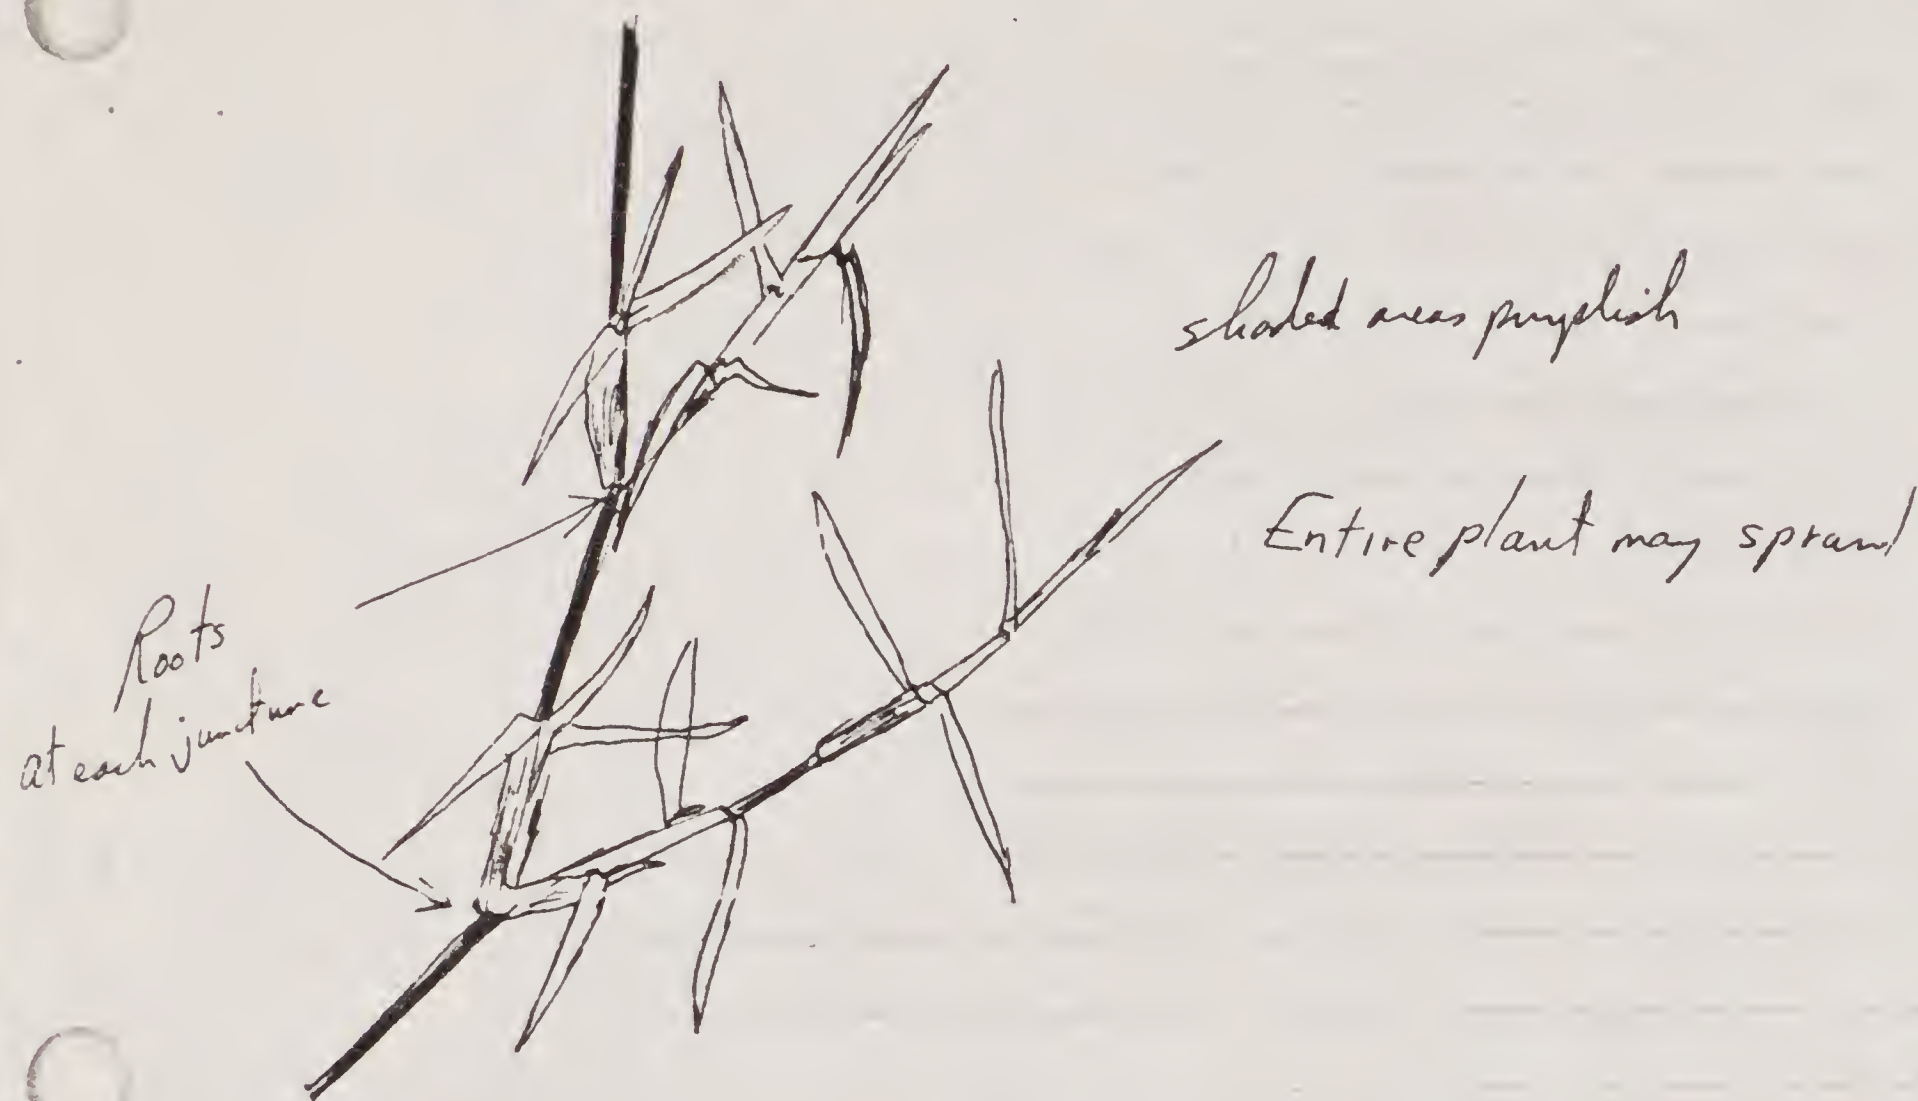 shaded areas purplish
Entire plant may sprawl
Roots
at each juncture